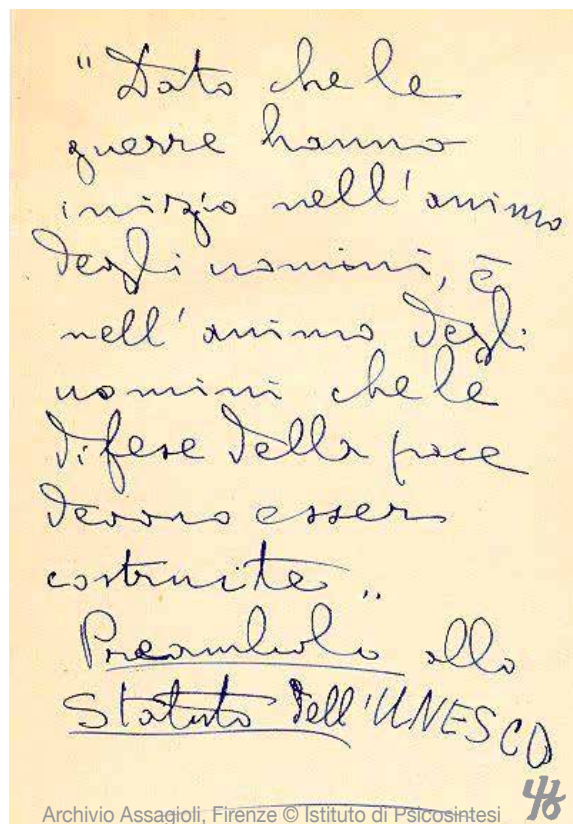 "Dato che le
guerre hanno
inizio nell'animo
degli uomini, è
nell'animo degli
uomini che le
difese della pace
devono esser
costruite"
Preambolo allo
Statuto dell'UNESCO
Archivio Assagioli, Firenze © Istituto di Psicosintesi